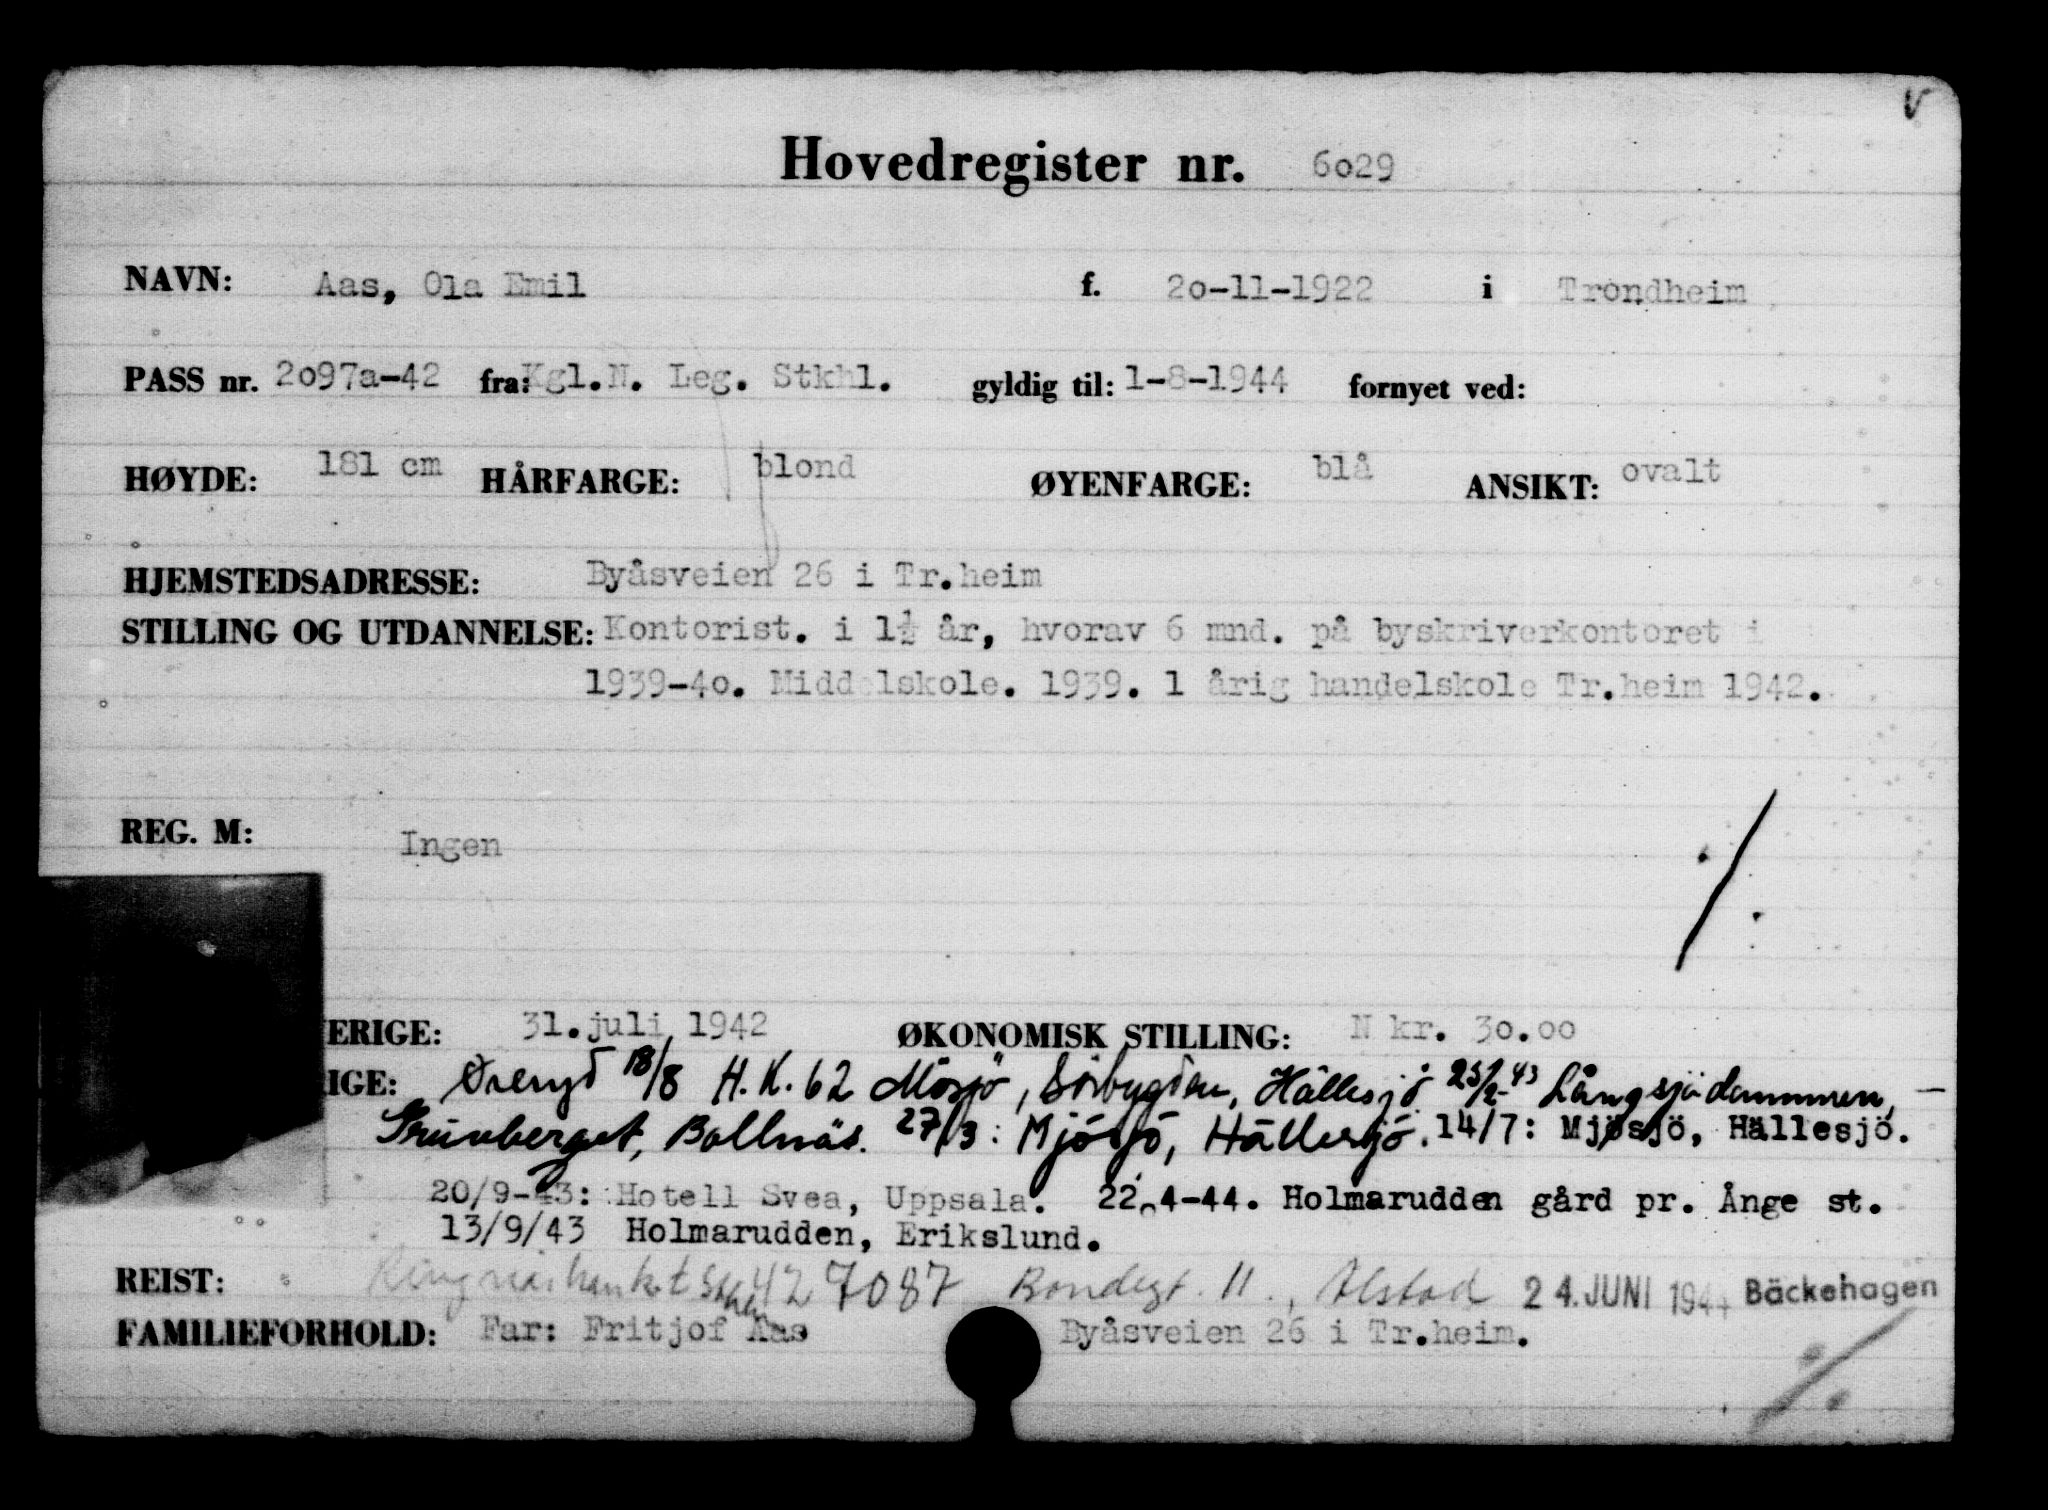 V
Hovedregister nr. 6029
NAVN: Aas, Ola Emil f. 20-11-1922 i Trondheim
PASS nr. 2097a-42 fra: Kgl.N. Leg. Stkhl. gyldig til: 1-8-1944 fornyet ved:
HØYDE: 181 cm HÅRFARGE: blond ØYENFARGE: blå ANSIKT: ovalt
HJEMSTEDSADRESSE: Byåsveien 26 i Tr.heim
STILLING OG UTDANNELSE: Kontorist. i 1½ år, hvorav 6 mnd. på byskriverkontoret i
1939-40. Middelskole. 1939. 1 årig handelskole Tr.heim 1942.
REG. M: Ingen
ERIGE: 31.juli 1942 ØKONOMISK STILLING: N kr. 30.00
IGE: Øreryd 18/8 H.K. 62 Mösjö, Sörbygden, Hällesjö 25/2-43 Långsjödammen, —
Grünberget, Bollnäs. 27/3: Mjösjö, Hällesjö. 14/7: Mjösjö, Hällesjö.
20/9-43: Hotell Svea, Uppsala. 22.4-44. Holmarudden gård pr. Ånge st.
13/9/43 Holmarudden, Erikslund.
REIST: 427087 Bondegt. 11., 24. JUNI 1944 Bäckehagen
FAMILIEFORHOLD: Far: Fritjof Aas Byåsveien 26 i Tr.heim.